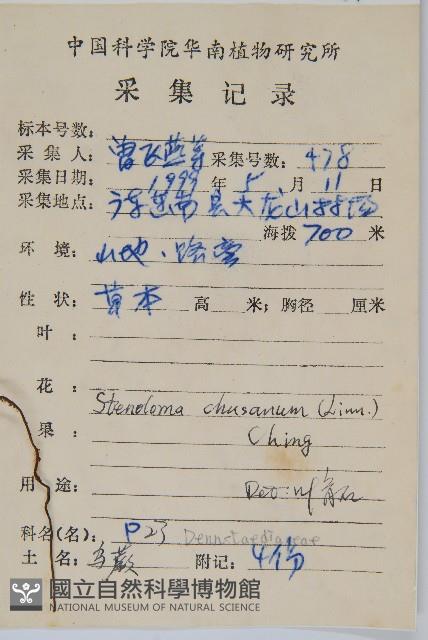 中国科学院华南植物研究所
采集记录
标本号数：
采集人：曾飞燕等 采集号数：478
采集日期：1999年5月11日
采集地点：县大龙山林场
海拨 700 米
环境：山地、路旁
性状：草本 高 米；胸径 厘米
叶：
花：
Stenoloma chusanum (Linn.)
果： Ching
用途： Det: 叶育石
科名(名)：P23 Dennstaedtiaceae
土名：乌蕨 附记：4份
國立自然科學博物館
NATIONAL MUSEUM OF NATURAL SCIENCE